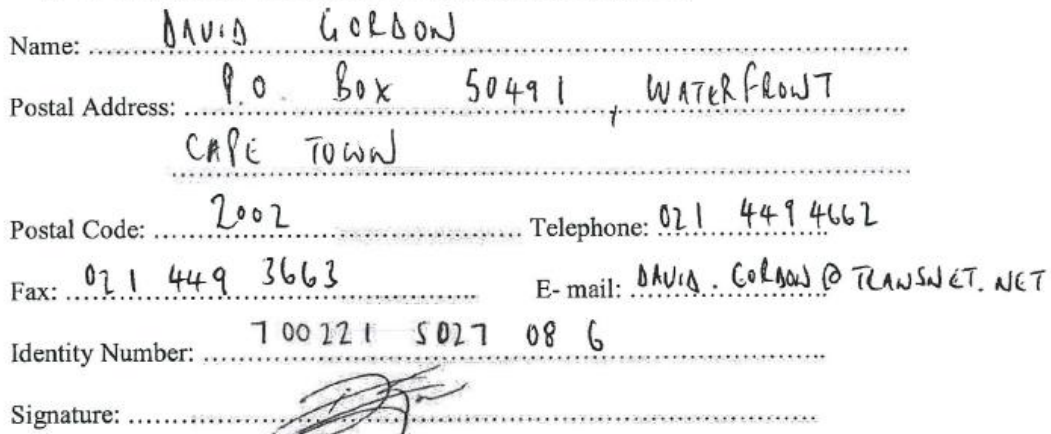 Name: DAVID GORDON
Postal Address: P.O. Box 50491, WATERFRONT
CAPE TOWN
Postal Code: 2002 Telephone: 021 449 4662
Fax: 021 449 3663 E- mail: DAVID.GORDON@TRANSNET.NET
Identity Number: 700221 5027 08 6
Signature: